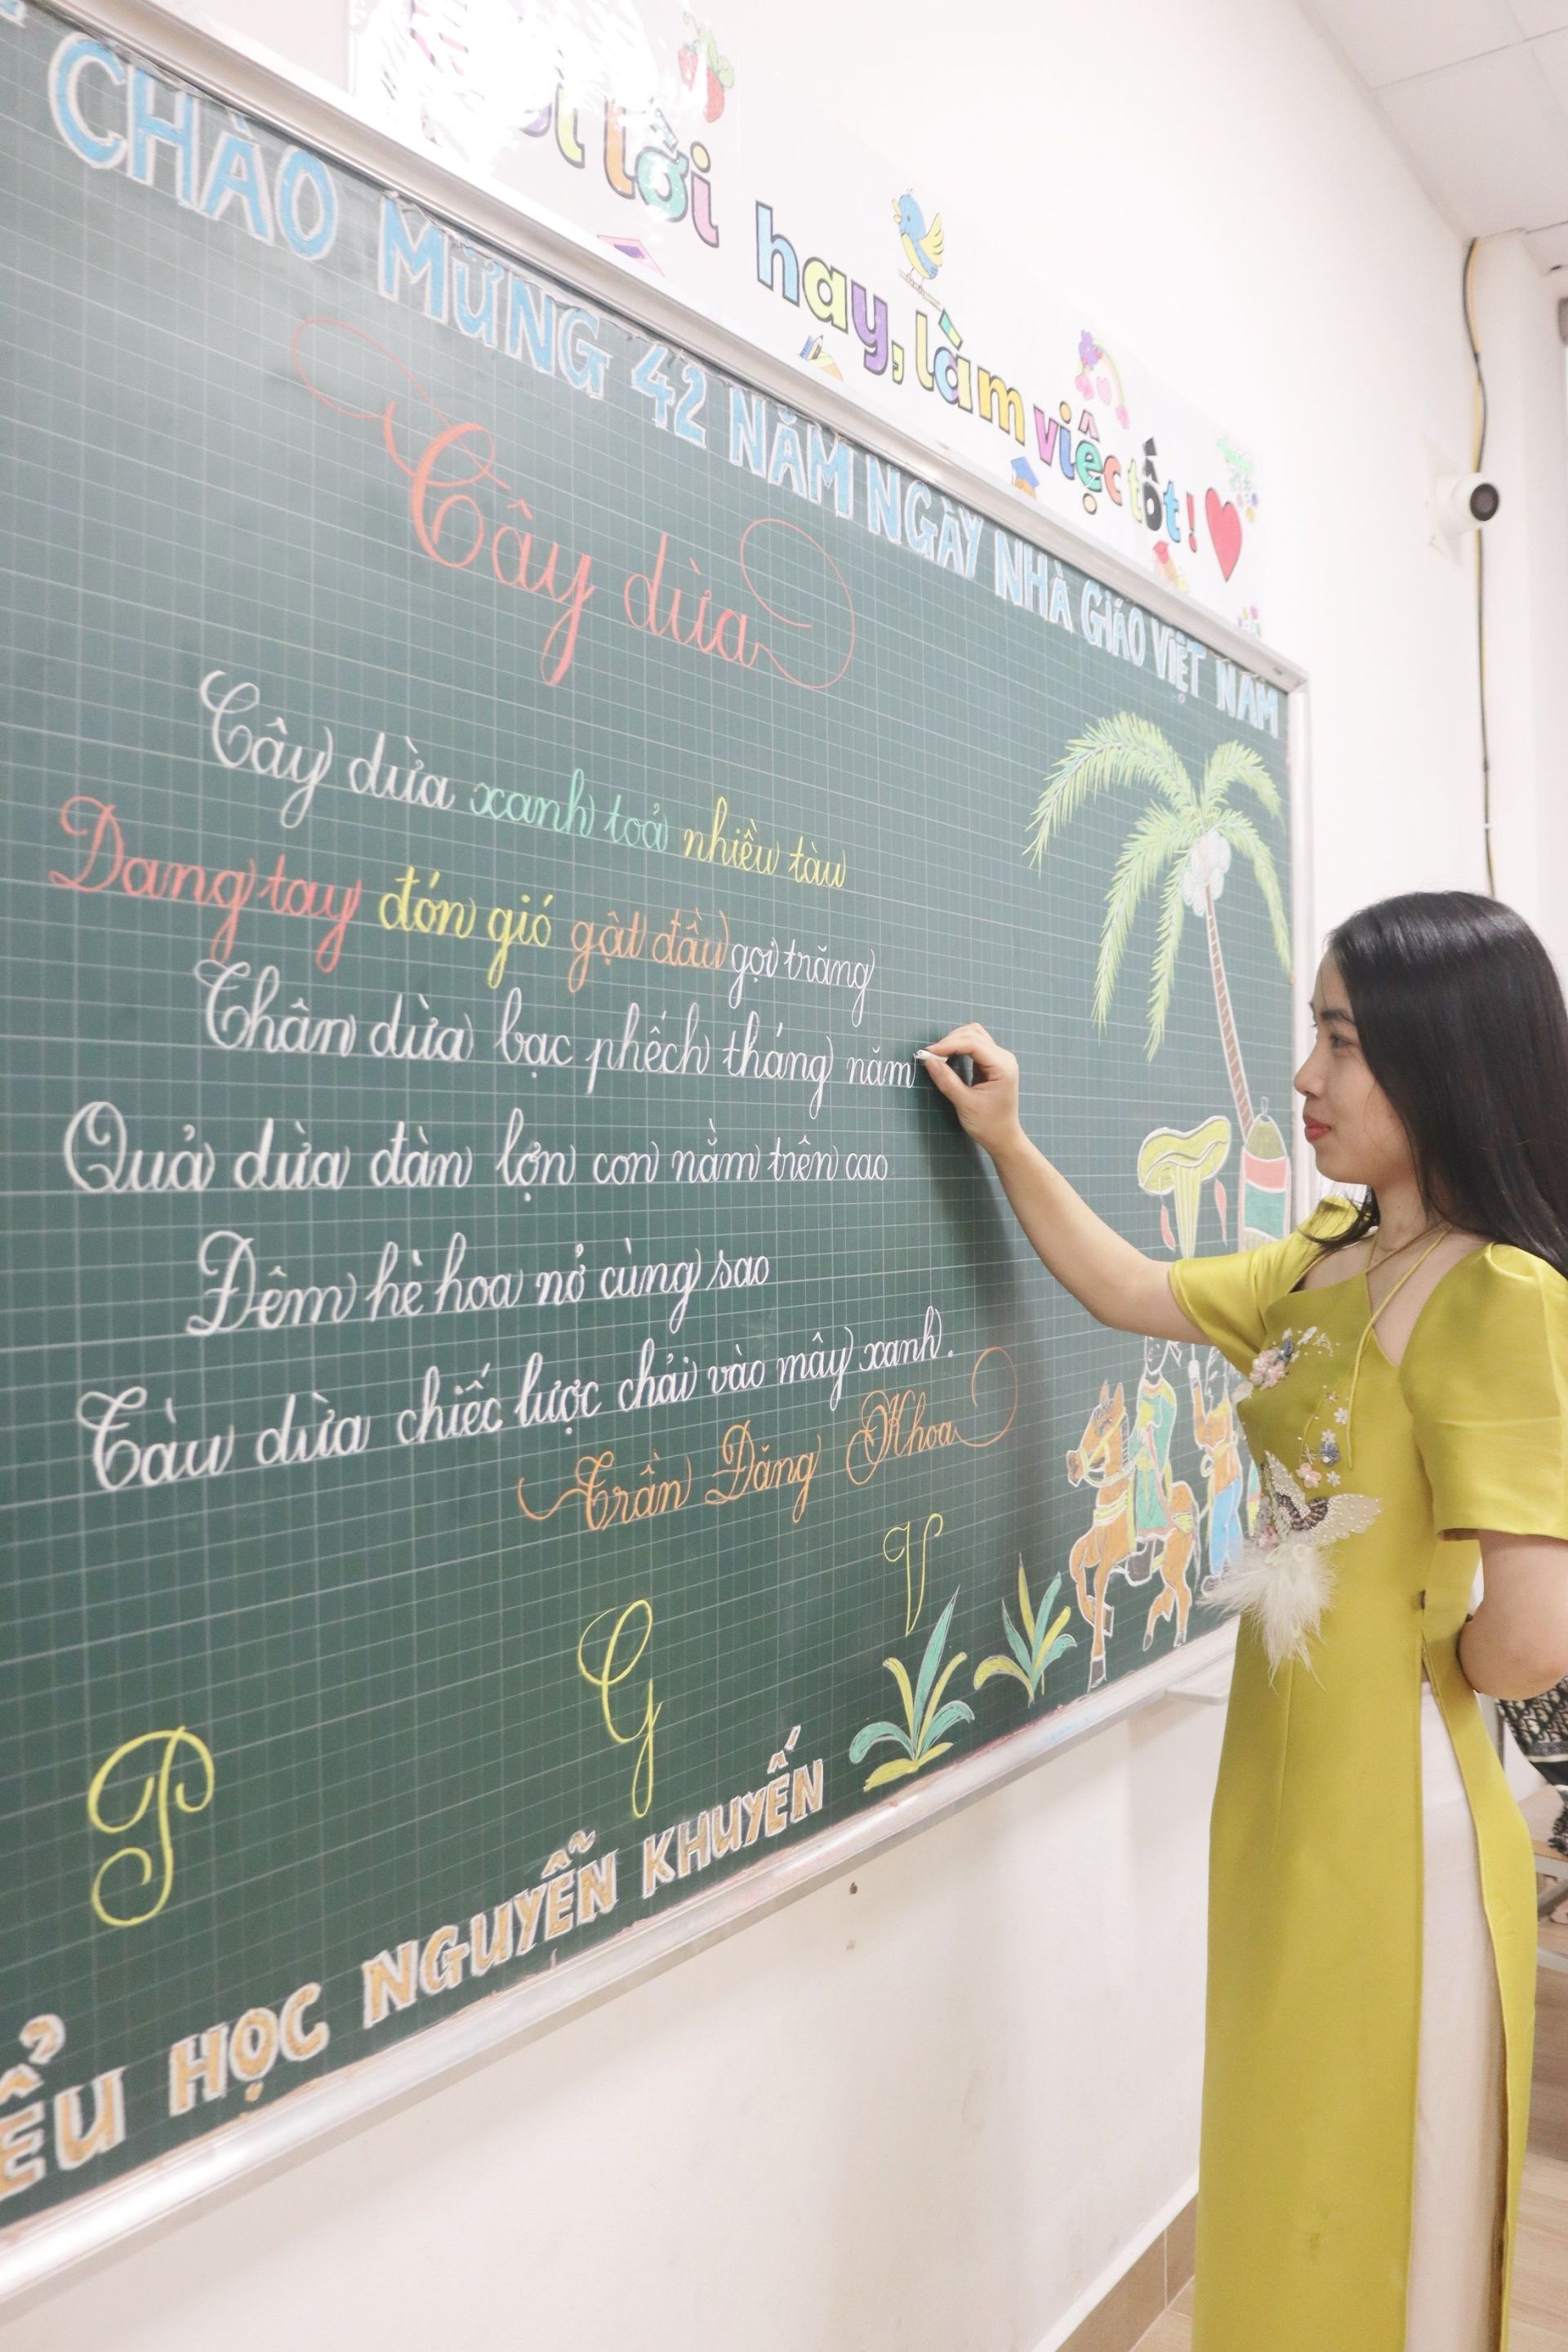 lời hay, làm việc tốt!
CHÀO MỪNG 42 NĂM NGÀY NHÀ GIÁO VIỆT NAM
Cây dừa
Cây dừa xanh toả nhiều tàu
Dang tay đón gió gật đầu gọi trăng
Thân dừa bạc phếch tháng năm
Quả dừa đàn lợn con nằm trên cao
Đêm hè hoa nở cùng sao
Tàu dừa chiếc lược chải vào mây xanh.
Trần Đăng Khoa
P G V
ỂU HỌC NGUYỄN KHUYẾN